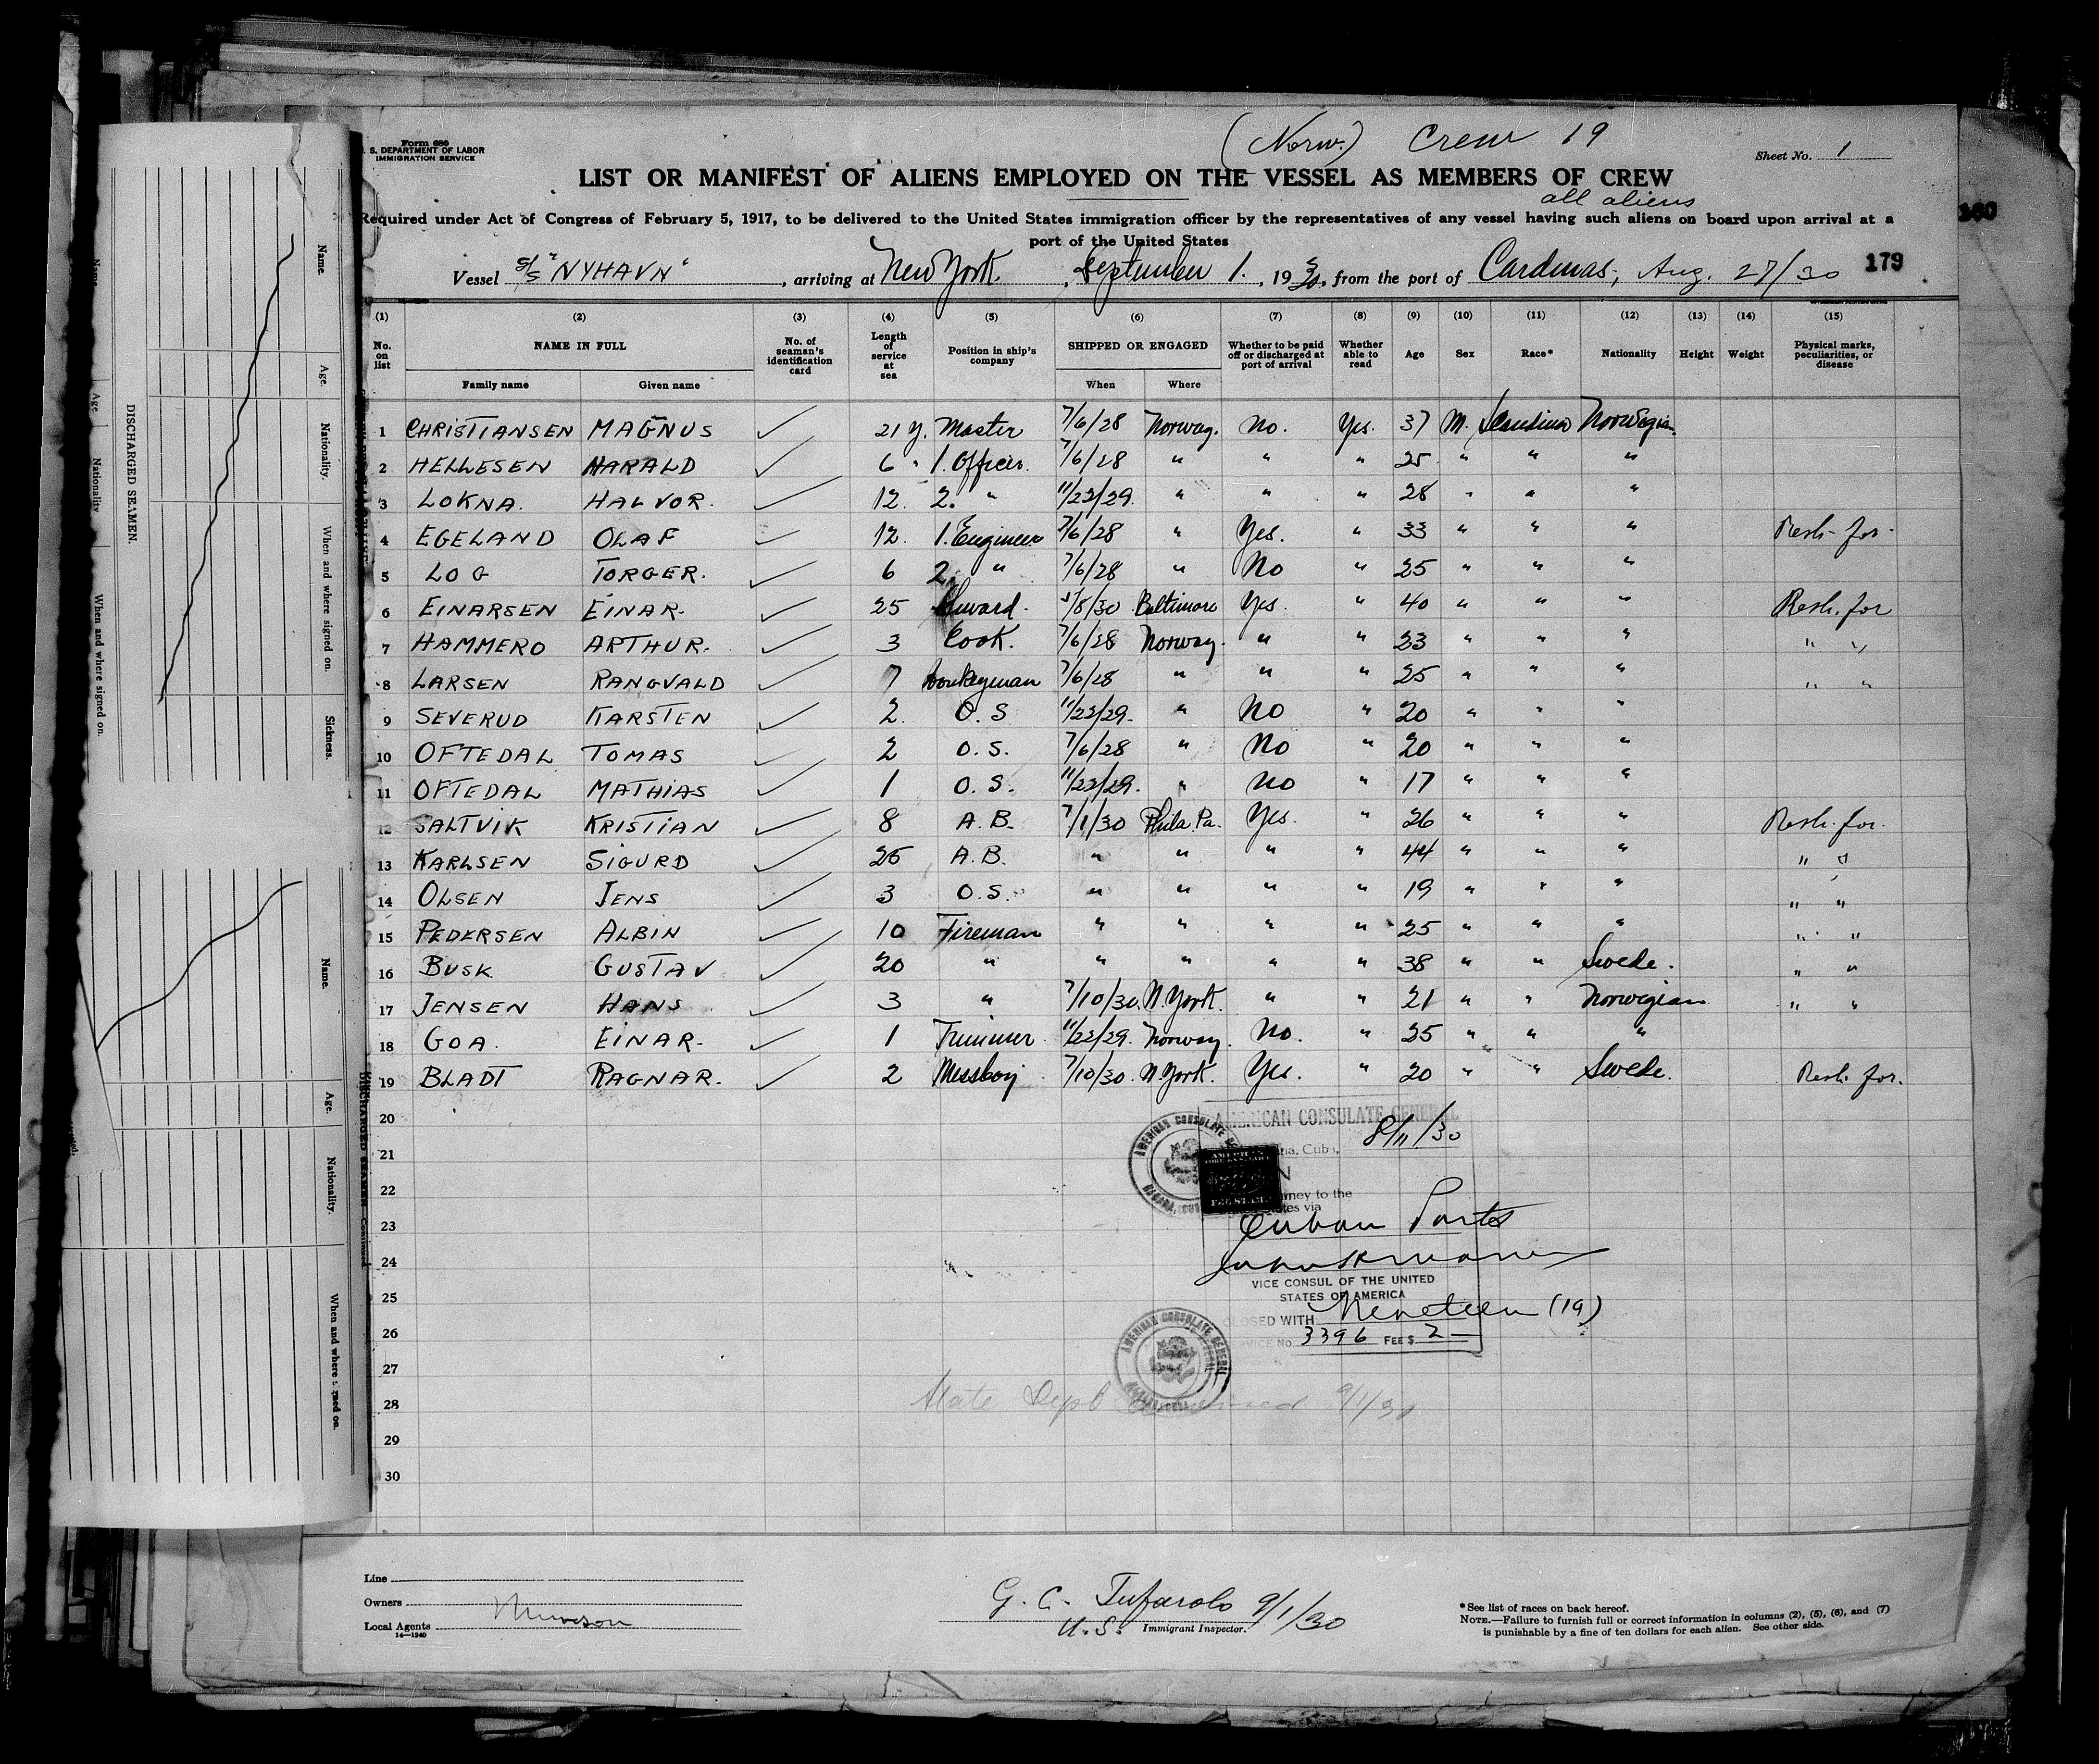 (Norw.) Crew 19
Form 680
U. S. DEPARTMENT OF LABOR
IMMIGRATION SERVICE
Sheet No. 1
LIST OR MANIFEST OF ALIENS EMPLOYED ON THE VESSEL AS MEMBERS OF CREW
all aliens
Required under Act of Congress of February 5, 1917, to be delivered to the United States immigration officer by the representatives of any vessel having such aliens on board upon arrival at a
port of the United States
160
Vessel S/S "NYHAVN", arriving at New York, September 1., 1930, from the port of Cardenas, Aug. 27/30 179
(1) (2) (3) (4) (5) (6) (7) (8) (9) (10) (11) (12) (13) (14) (15)
No. on list NAME IN FULL No. of seaman's identification card Length of service at sea Position in ship's company SHIPPED OR ENGAGED Whether to be paid off or discharged at port of arrival Whether able to read Age Sex Race* Nationality Height Weight Physical marks, peculiarities, or disease
Family name Given name When Where
1 CHRISTIANSEN MAGNUS 21 y. Master 7/6/28 Norway. No. Yes. 37 M. Scandinav Norwegian
2 HELLESEN HARALD 6 " 1. Officer. 7/6/28 " " " 25 " " "
3 LOKNA. HALVOR. 12. 2. " 11/22/29. " " " 28 " " "
4 EGELAND OLAF 12. 1. Engineer 7/6/28 " Yes. " 33 " " " Resh. for.
5 LOG TORGER. 6 2 " 7/6/28 " No " 25 " " "
6 EINARSEN EINAR. 25 Steward. /8/30 Baltimore Yes. " 40 " " " Resh. for
7 HAMMERO ARTHUR. 3 Cook. 7/6/28 Norway. " " 23 " " " " "
8 LARSEN RANGVALD 7 Donkeyman 7/6/28 " " " 25 " " " " "
9 SEVERUD KARSTEN 2. O.S 11/22/29. " No " 20 " " "
10 OFTEDAL TOMAS 2 O.S. 7/6/28 " No " 20 " " "
11 OFTEDAL MATHIAS 1 O.S. 11/22/29. " No " 17 " " "
12 SALTVIK KRISTIAN 8 A.B. 7/1/30 Phila. Pa. Yes. " 26 " " " Resh. for.
13 KARLSEN SIGURD 25 A.B. " " " " 44 " " " " "
14 OLSEN JENS 3 O.S. " " " " 19 " " " " "
15 PEDERSEN ALBIN 10 Fireman " " " " 25 " " " " "
16 BUSK GUSTAV 20 " " " " " 38 " " Swede. " "
17 JENSEN HANS 3 " 7/10/30. N. York. " " 21 " " Norwegian " "
18 GOA. EINAR. 1 Trimmer 11/22/29. Norway. No. " 25 " " "
19 BLADT RAGNAR. 2 Messboy 7/10/30. N. York. Yes. " 20 " " Swede. Resh. for.
20
21
22
23
24
25
26
27
28
29
30
AMERICAN CONSULATE GENERAL
8/11/30
Cuban Ports
VICE CONSUL OF THE UNITED
STATES OF AMERICA
CLOSED WITH Nineteen (19)
SERVICE No. 3396 FEE $ 2—
AMERICAN CONSULATE GENERAL
State Dept 9/1/30
Line
Owners
Local Agents Munson
14—1240
G. C. Tufarolo 9/1/30
U.S. Immigrant Inspector.
*See list of races on back hereof.
NOTE.—Failure to furnish full or correct information in columns (2), (5), (6), and (7)
is punishable by a fine of ten dollars for each alien. See other side.
DISCHARGED SEAMEN.
Name.
Age.
Nationality.
When and where signed on.
Sickness.
Name.
Age.
Nationality.
When and where signed on.
DISCHARGED SEAMEN—Continued